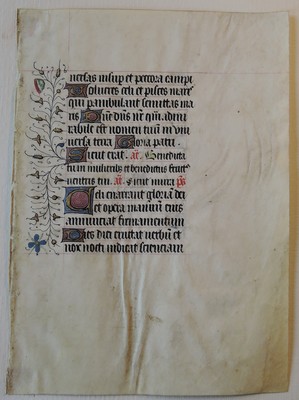 uersas insup et peccora campi
Volucres celi et pisces mare
qui pambulant semitas ma
ris Dñe dñs nr̃ q̃ admi
rabile est nomen tuũ in vni
uersa terra Gloria patri
Sicut erat. añ. Benedicta
tu in mulieribꝰ et benedictus fructꝰ
ventris tui. añ. Sicut mirra ps̃
Celi enarrant gloriã dei
et opera manuũ eius
annunciat firmamentum
Dies diei eructat verbũ et
nox nocti indicat scienciam